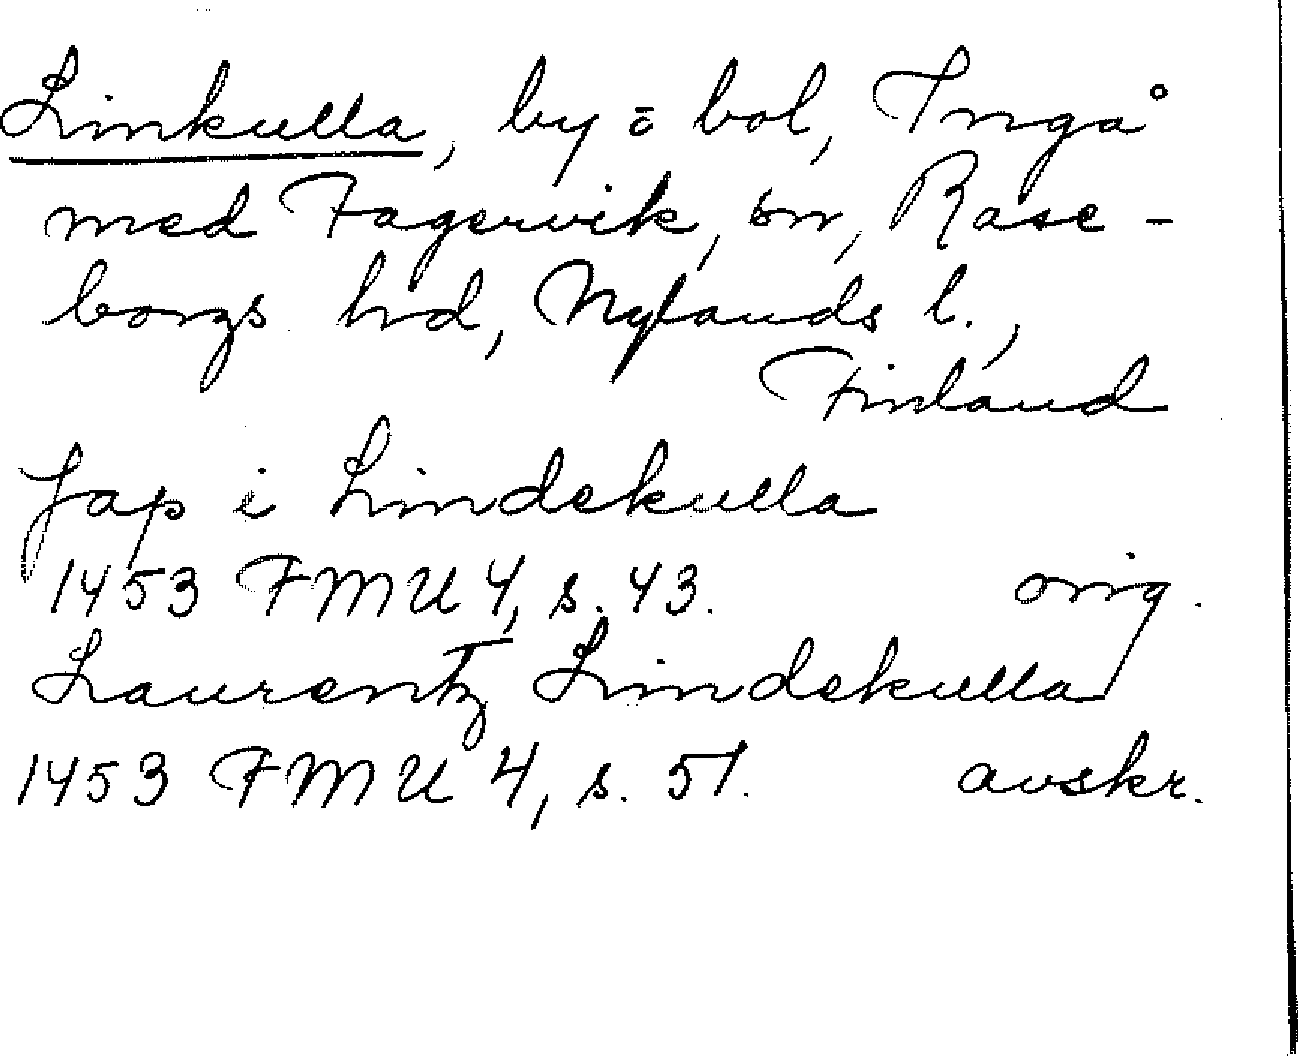 Linkulla, by = bol, Ingå
med Fagervik, sn, Rase-
borgs hrd, Nylands l.,
Finland
Jap i Lindekulla
1453 FMU 4, s. 43. orig.
Laurentz Lindekulla
1453 FMU 4, s. 51. avskr.